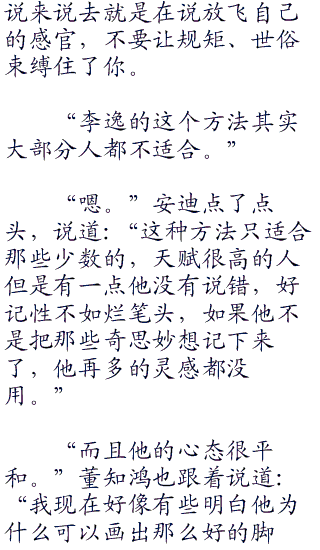 说来说去就是在说放飞自己
的感官，不要让规矩、世俗
束缚住了你。
“李逸的这个方法其实
大部分人都不适合。”
“嗯。”安迪点了点
头，说道：“这种方法只适合
那些少数的，天赋很高的人
但是有一点他没有说错，好
记性不如烂笔头，如果他不
是把那些奇思妙想记下来
了，他再多的灵感都没
用。”
“而且他的心态很平
和。”董知鸿也跟着说道：
“我现在好像有些明白他为
什么可以画出那么好的脚